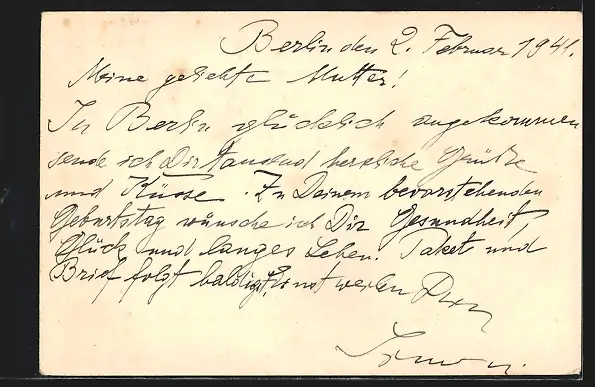 Berlin den 2. Februar 1941.
Meine geliebte Mutter!
In Berlin glücklich angekommen
sende ich Dir tausend herzliche Grüße
und Küsse. Zu Deinem bevorstehenden
Geburtstag wünsche ich Dir Gesundheit
Glück und langes Leben. Paket und
Brief folgt baldigst. Einstweilen Dein